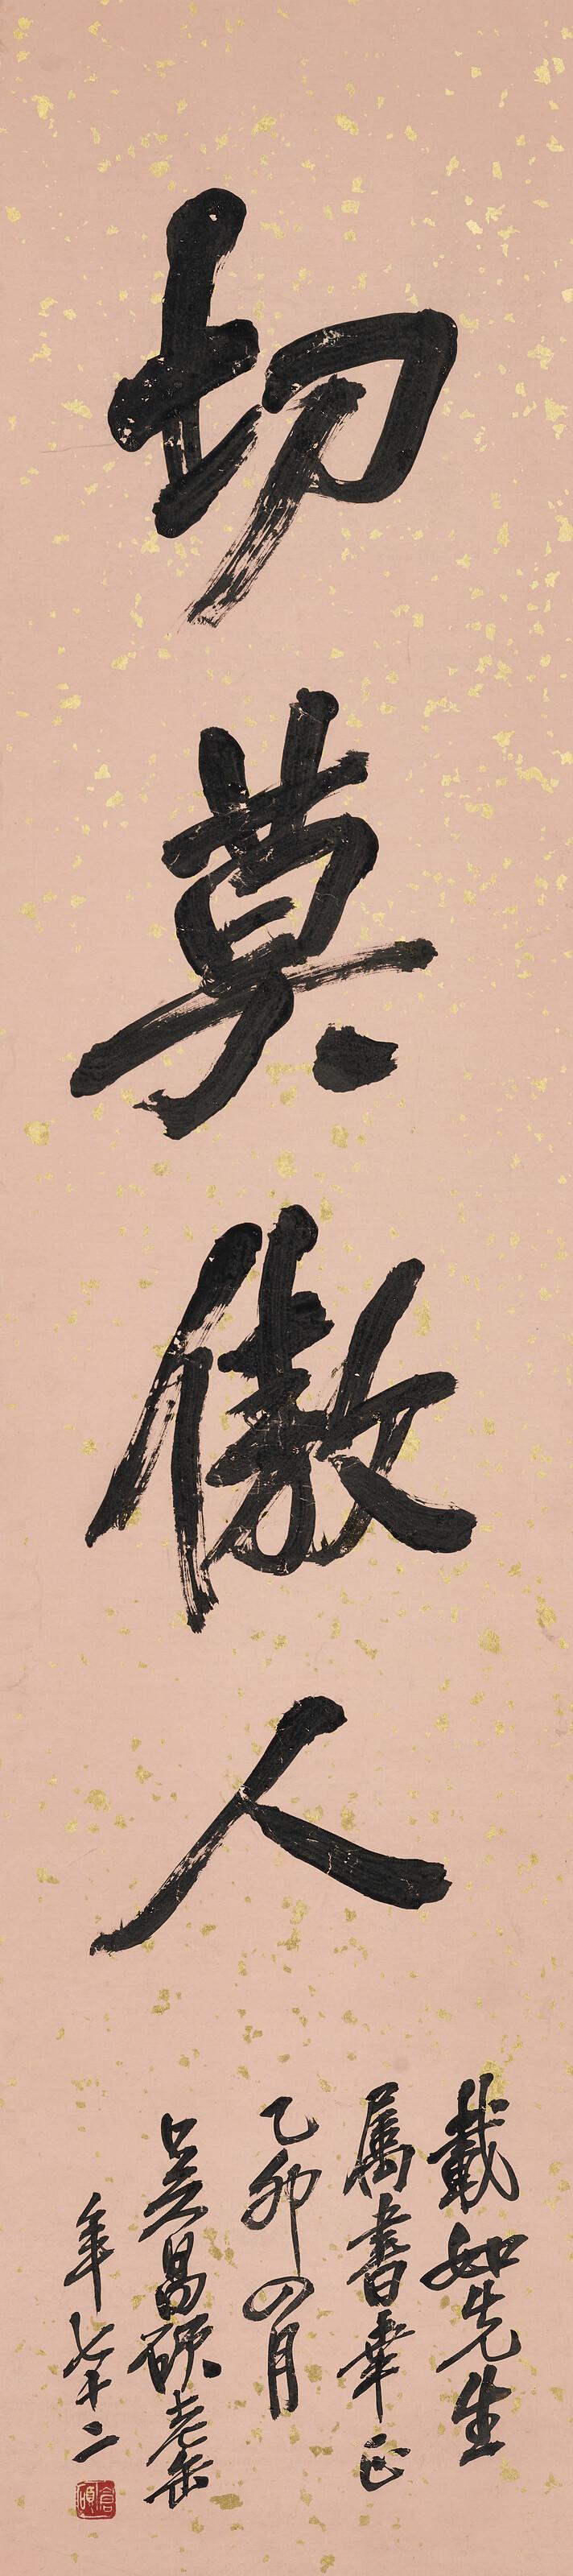 切莫傲人
載如先生
屬書幸正
乙卯四月
吳昌碩老缶
年七十二
倉碩